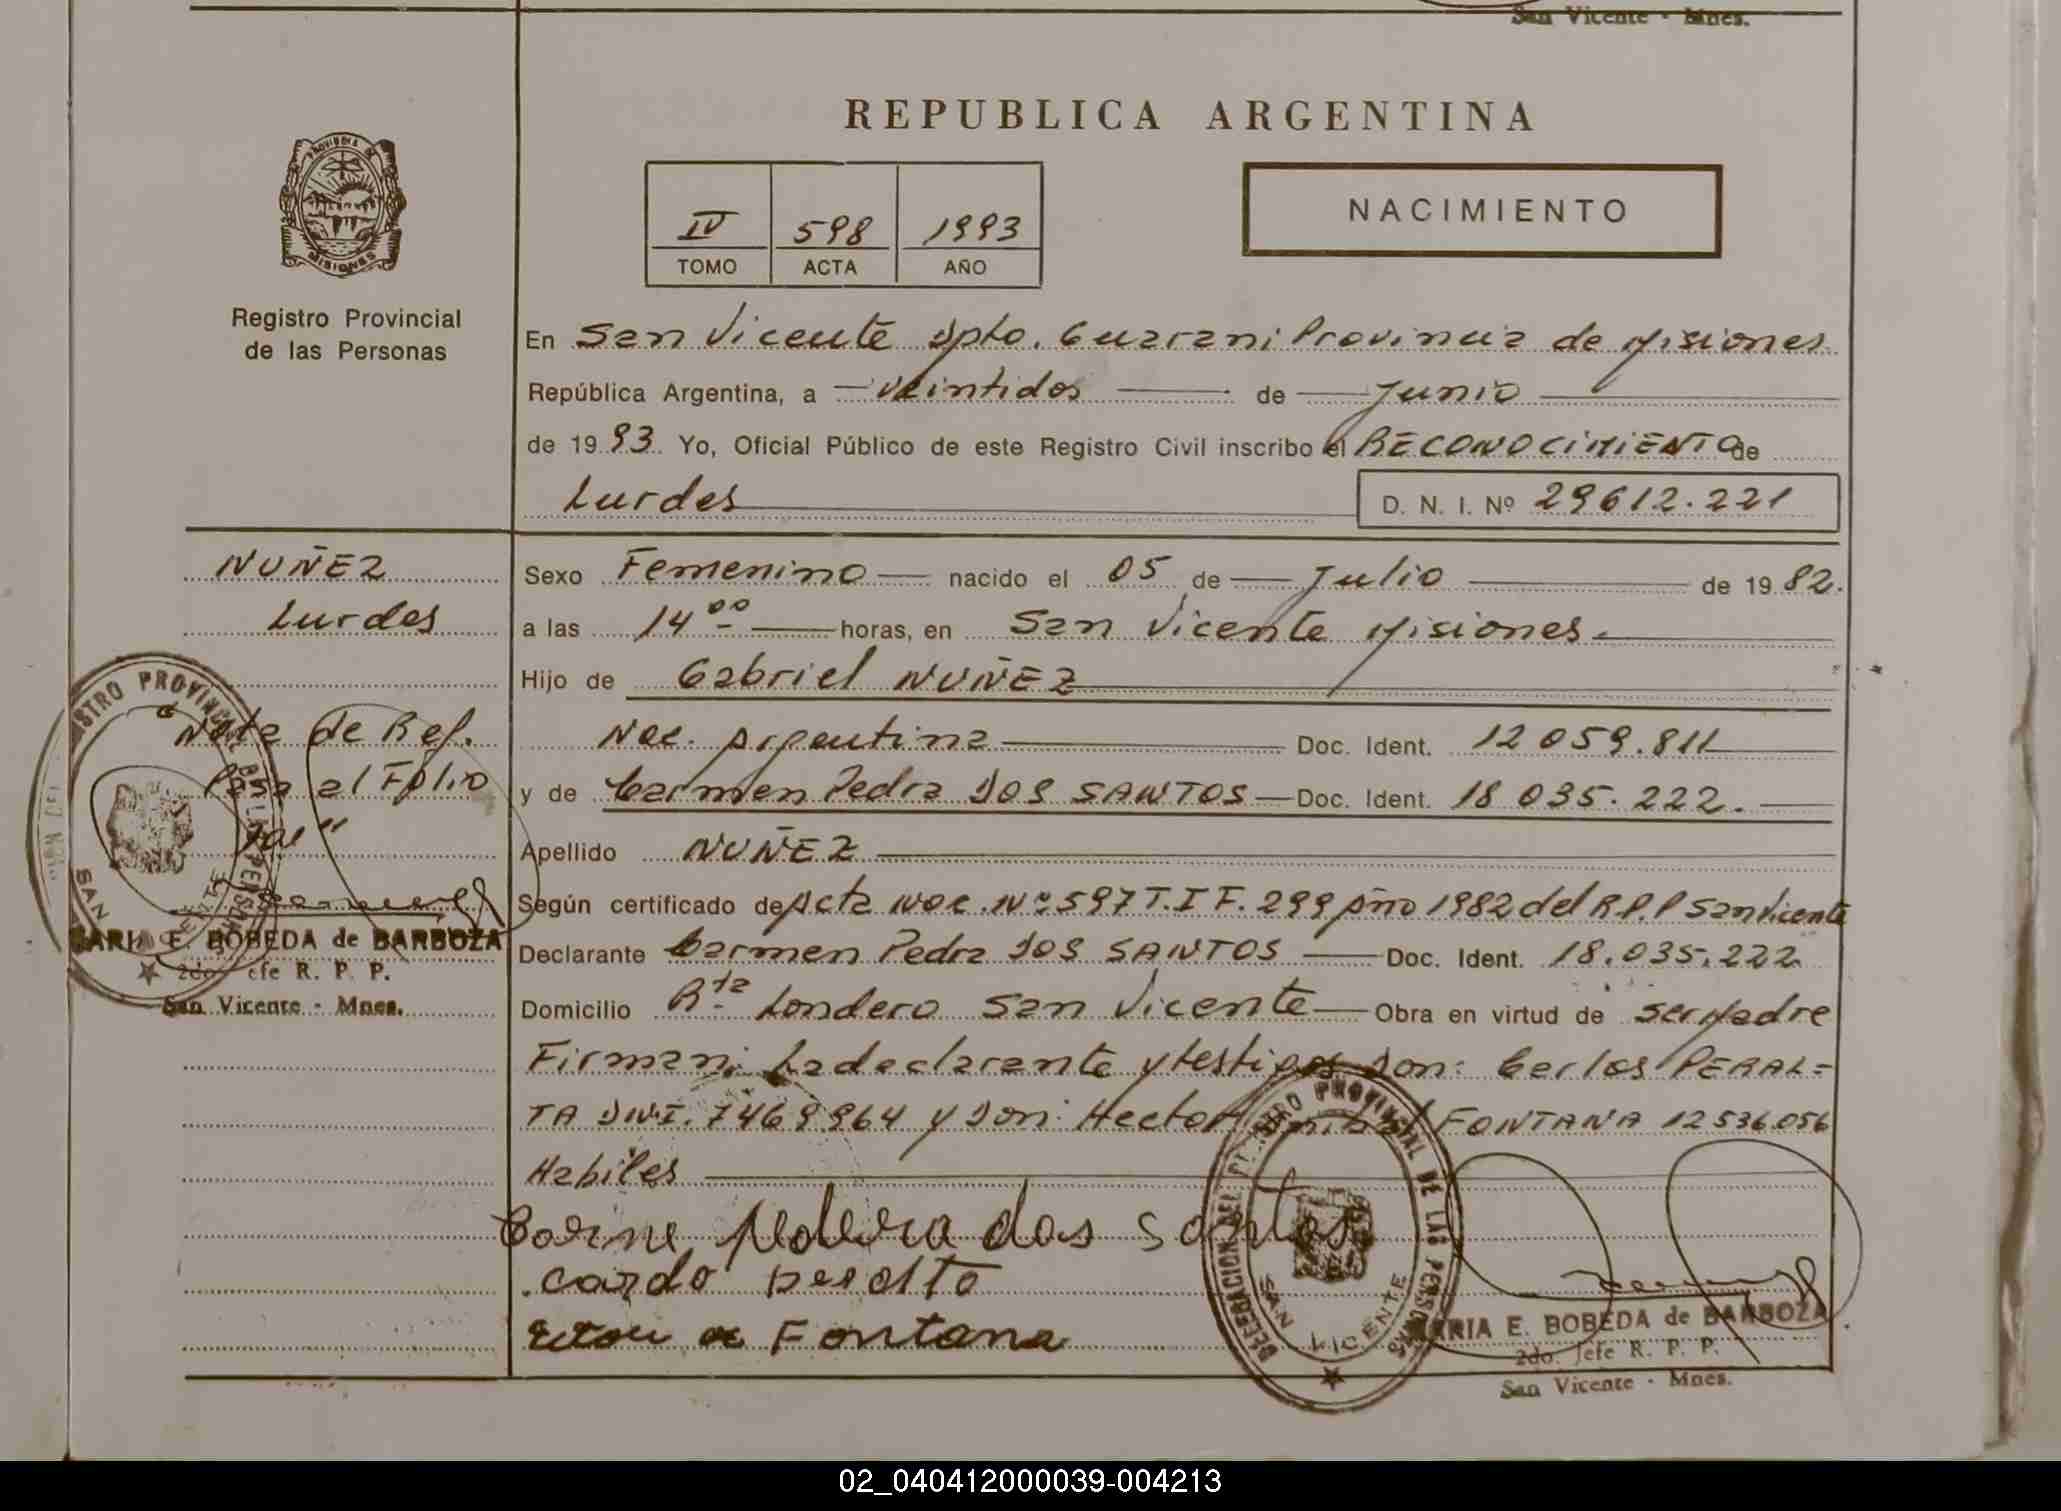 San Vicente - Mnes.
REPUBLICA ARGENTINA
PROVINCIA DE MISIONES
Registro Provincial
de las Personas
IV 598 1993
TOMO ACTA AÑO
NACIMIENTO
En San Vicente Dpto. Guarani Provincia de Misiones
República Argentina, a veintidos de Junio
de 1993 Yo, Oficial Público de este Registro Civil inscribo el RECONOCIMIENTO de
Lurdes D. N. I. Nº 29612.221
NUÑEZ
Lurdes
Nota de Ref.
Pasa al Folio
MARIA E. BOBEDA de BARBOZA
2do. Jefe R. P. P.
San Vicente - Mnes.
Sexo Femenino nacido el 05 de Julio de 1982.
a las 14 00 horas, en San Vicente Misiones.
Hijo de Gabriel NUÑEZ
Nac. Argentina Doc. Ident. 12 059.811
y de Carmen Pedra DOS SANTOS Doc. Ident. 18 035.222.
Apellido NUÑEZ
Según certificado de Acta Nac. Nº 597 T. I F. 299 Año 1982 del R.P.P San Vicente
Declarante Carmen Pedra DOS SANTOS Doc. Ident. 18.035.222
Domicilio Rta Londero San Vicente Obra en virtud de ser Madre
Firman: La declarante y testigos Don: Carlos PERAL=
TA D.N.I. 7469964 y Don: Hector FONTANA 12536056
Habiles
dos santos
Fontana
DELEGACION DEL REGISTRO PROVINCIAL DE LAS PERSONAS
SAN VICENTE
MARIA E. BOBEDA de BARBOZA
2do. Jefe R. P. P.
San Vicente - Mnes.
02_040412000039-004213